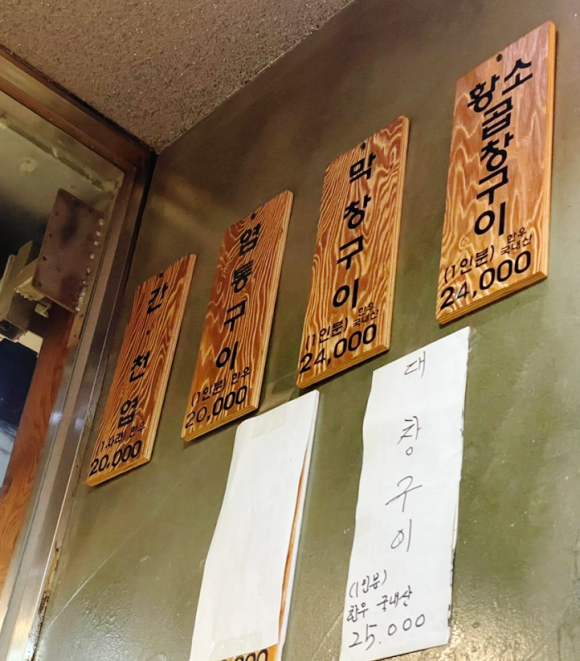 간·천엽
(1사라) 한우
20,000
염통구이
(1인분) 한우
20,000
막창구이
(1인분) 한우 국내산
24,000
소황곱창구이
(1인분) 한우 국내산
24,000
대창구이
(1인분)
한우 국내산
25.000